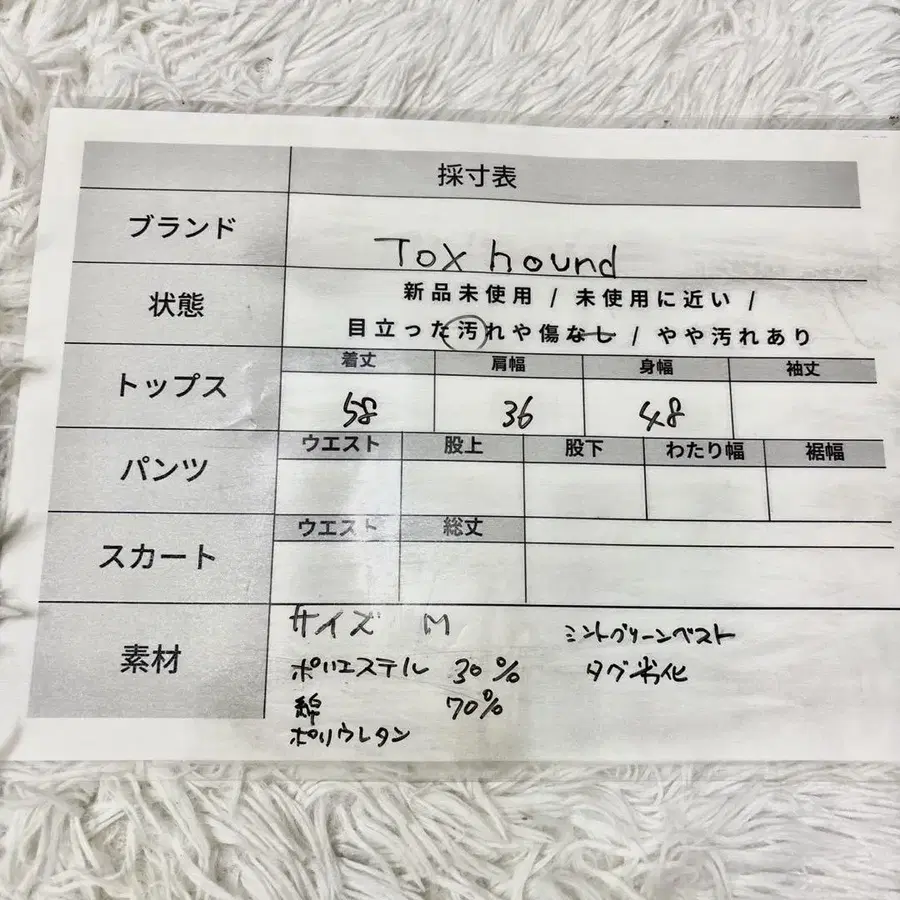 採寸表
ブランド
Tox hound
状態
新品未使用 / 未使用に近い /
目立った汚れや傷なし / やや汚れあり
トップス
着丈 肩幅 身幅 袖丈
58 36 48
パンツ
ウエスト 股上 股下 わたり幅 裾幅
スカート
ウエスト 総丈
素材
サイズ M ミントグリーンベスト
ポリエステル 30% タグ劣化
綿 70%
ポリウレタン